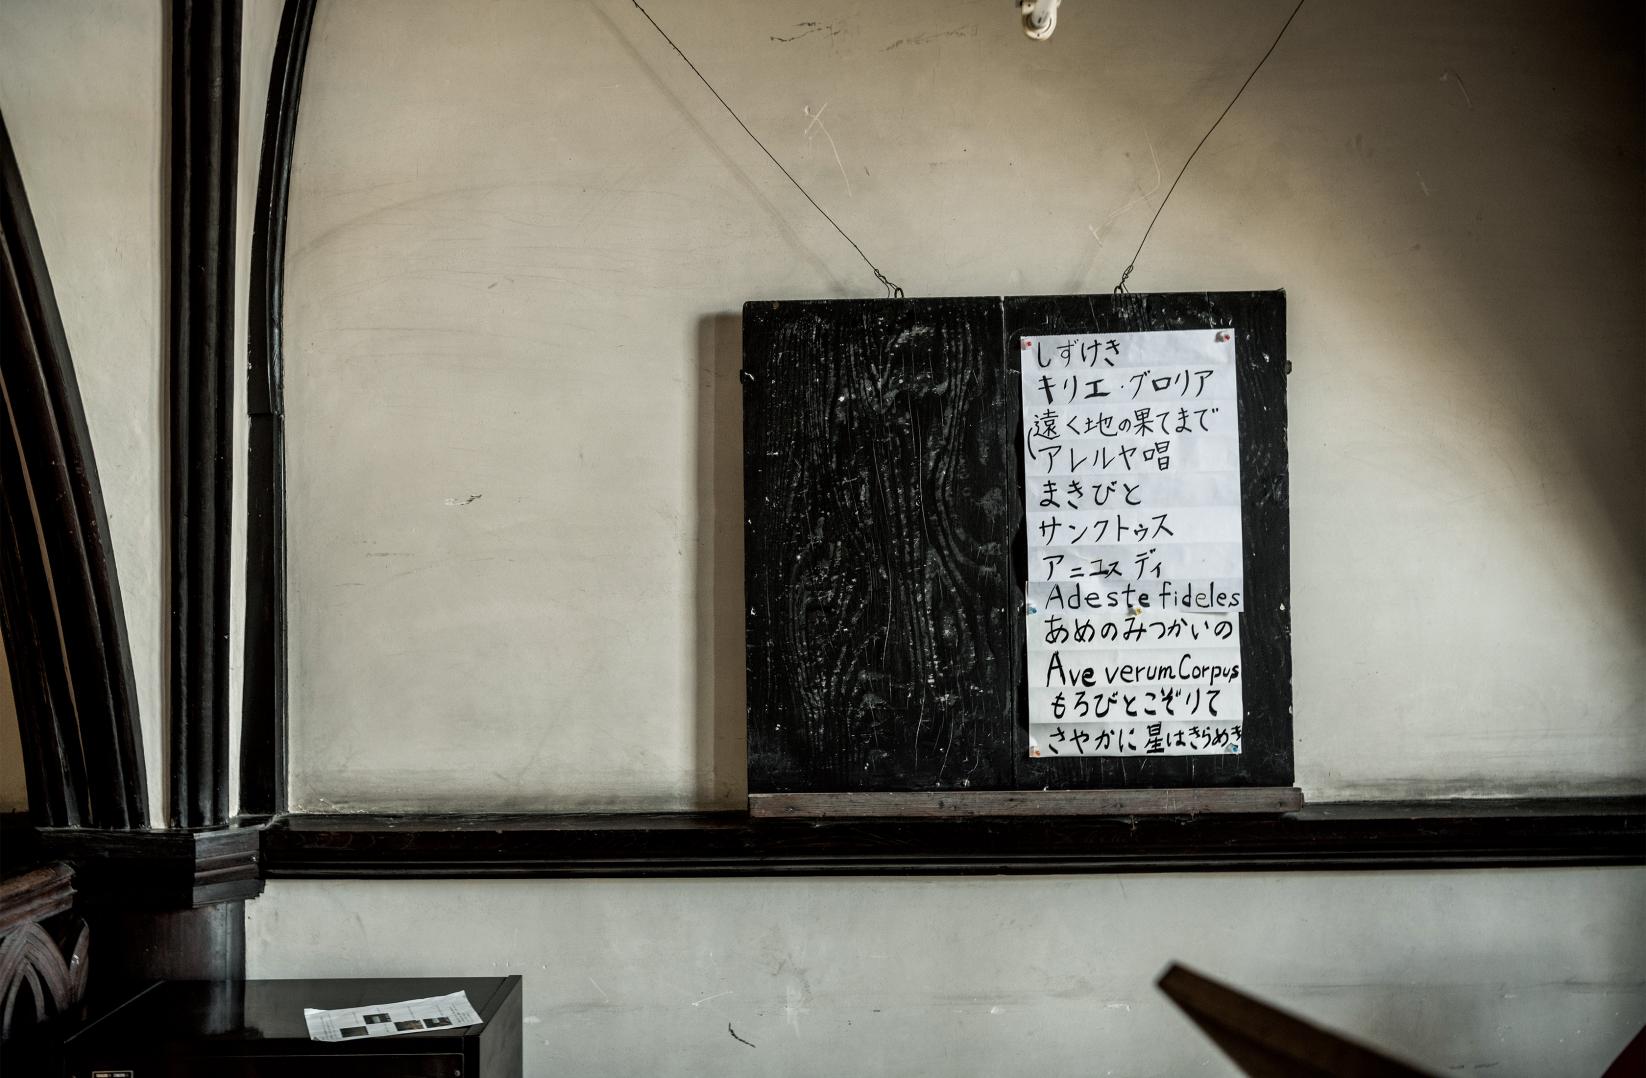 しずけき
キリエ・グロリア
遠く地の果てまで
(アレルヤ唱
まきびと
サンクトゥス
アニュス ディ
Adeste fideles
あめのみつかいの
Ave verum Corpus
もろびとこぞりて
さやかに星はきらめき